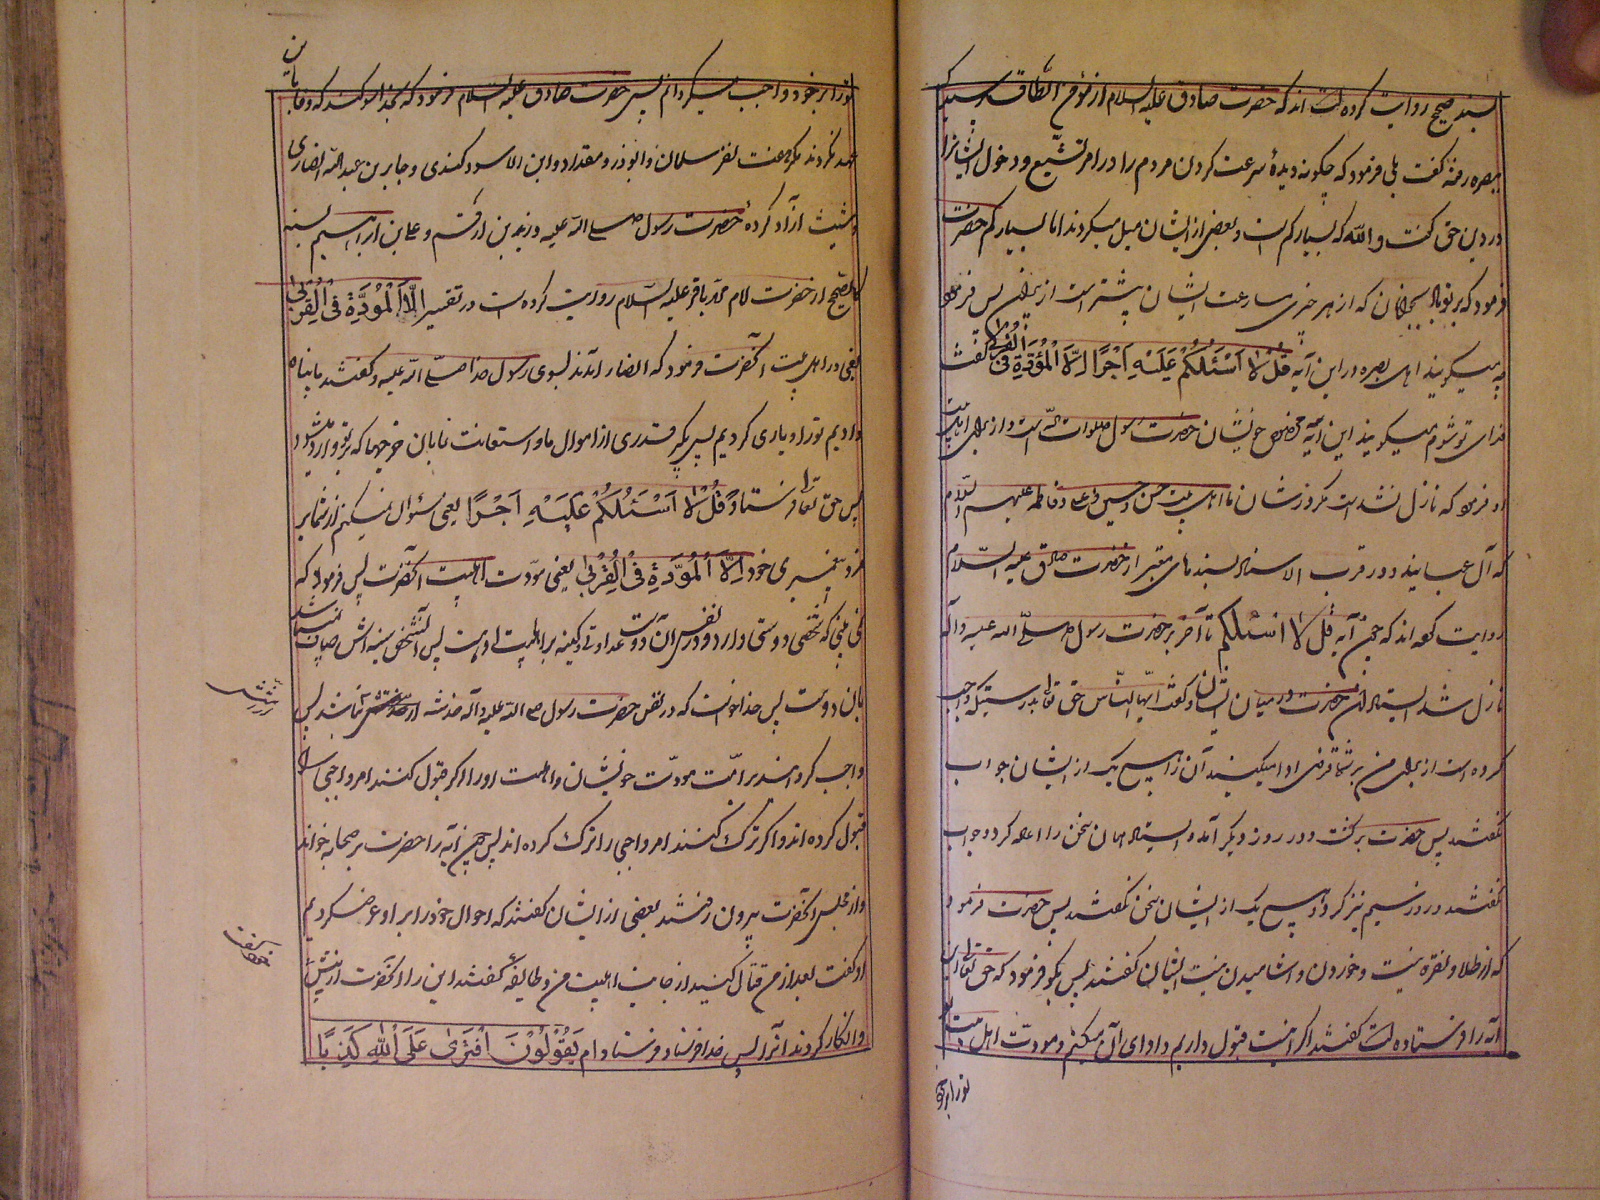 بسند صحیح روایت کرده است اند که حضرت صادق علیه السلام از مؤمن الطاق پرسید که
ببصره رفته گفت بلی فرمود که چگونه دیدهٔ سرعت کردن مردم را در امر تشیع و دخول ایشانرا
در دین حق گفت والله که بسیار کم است و بعضی از ایشان میل میکردند اما بسیار کم حضرت
فرمود که بر تو باد بجوانان که از هر خیری مسارعت ایشان بیشتر است از پیران پس فرمود
چه میگویند اهل بصره در این آیه قُلْ لا اَسْئَلُكُمْ عَلَيْهِ اَجْرًا اِلَّا الْمُوَدَّةَ فِى الْقُرْبٰى گفت
فدای تو شوم میگویند این آیه مخصوص خویشان حضرت رسول صلوات الله است و از برای اهل بیت
او فرمود که نازل نشد است مگر در شان ما اهل بیت حسن و حسین و علی و فاطمه علیهم السلام
که آل عبایند و در قرب الاسناد بسند های معتبر از حضرت صادق علیه السلام
روایت کرده اند که چون آیه قل لا اسئلکم تا آخر بر حضرت رسول صلی الله علیه و آله
نازل شد ایستاد آن حضرت در میان ایشان و گفت ایها الناس حق تعالی بدرستیکه واجب
کرده است از برای من بر شما فرضی ادا میکنید آن را هیچ یک از ایشان جواب
نگفتند پس حضرت برگشت و در روز دیگر آمده ایستاد همان سخن را اعاده کرد و جواب
نگفتند و در روز سیم نیز کرد و هیچ یک از ایشان سخن نگفتند پس حضرت فرمود
که از طلا و نقره نیست و خوردن و اشامیدن نیست ایشان گفتند پس بگو فرمود که حق تعالی این
آیه را فرستاده است گفتند اگر اینست قبول داریم و ادای آن میکنیم و مودت اهل بیت
تو را بر خود
تو را بر خود واجب میگردانیم پس حضرت صادق علیه السلام فرمود که بخدا سوگند که وفا باین
عهد نکردند مگر هفت نفر سلمان و ابوذر و مقداد و ابن الاسود کندی و جابر بن عبد الله انصاری
و ثبیت آزاد کردهٔ حضرت رسول صلی الله علیه و زید بن ارقم و علی بن ابراهیم بسند
صحیح از حضرت امام محمد باقر علیه السلام روایت کرده است در تفسیر اِلَّا الْمُوَدَّةَ فِى الْقُرْبٰى
یعنی در اهل بیت آنحضرت فرمود که انصار آمدند بسوی رسول خدا صلی الله علیه و گفتند ما پناه
دادیم تو را و یاری کردیم پس بگیر قدری از اموال ما و استعانت نما بان خرجیها که بتو وارد میشود
پس حق تعالی فرستاد قُلْ لا اَسْئَلُكُمْ عَلَيْهِ اَجْرًا یعنی سؤال نمیکنم از شما بر
مزد پیغمبری خود اِلَّا الْمُوَدَّةَ فِى الْقُرْبٰى یعنی مودت اهلبیت آنحضرت پس فرمود که
نمی بینی که شخصی دوستی دارد و در نفس آن دوست عداوتی و کینه بر اهلبیت او هست پس آنشخص سینه اش صاف نمیباشد
بان دوست پس خدا خواست که در نفس حضرت رسول صلی الله علیه و آله خدشه از امتش نباشد پس
واجب گردانید بر امت مودت خویشان و اهلبیت او را اگر قبول کنند امر واجبی را
قبول کرده اند و اگر ترک کنند امر واجبی را ترک کرده اند پس چون آیه را حضرت بر صحابه خواند
و از مجلس آنحضرت بیرون رفتند بعضی از ایشان گفتند که اموال خود را بر او عرض کردیم
او گفت بعد از من قتال کنید از جانب اهلبیت من و طایفهٔ گفتند این را آنحضرت از پیش
و انکار کردند آنرا پس خدا فرستاد يَقُوْلُوْنَ اَفْتَرٰى عَلَى اللّٰهِ كَذِبًا